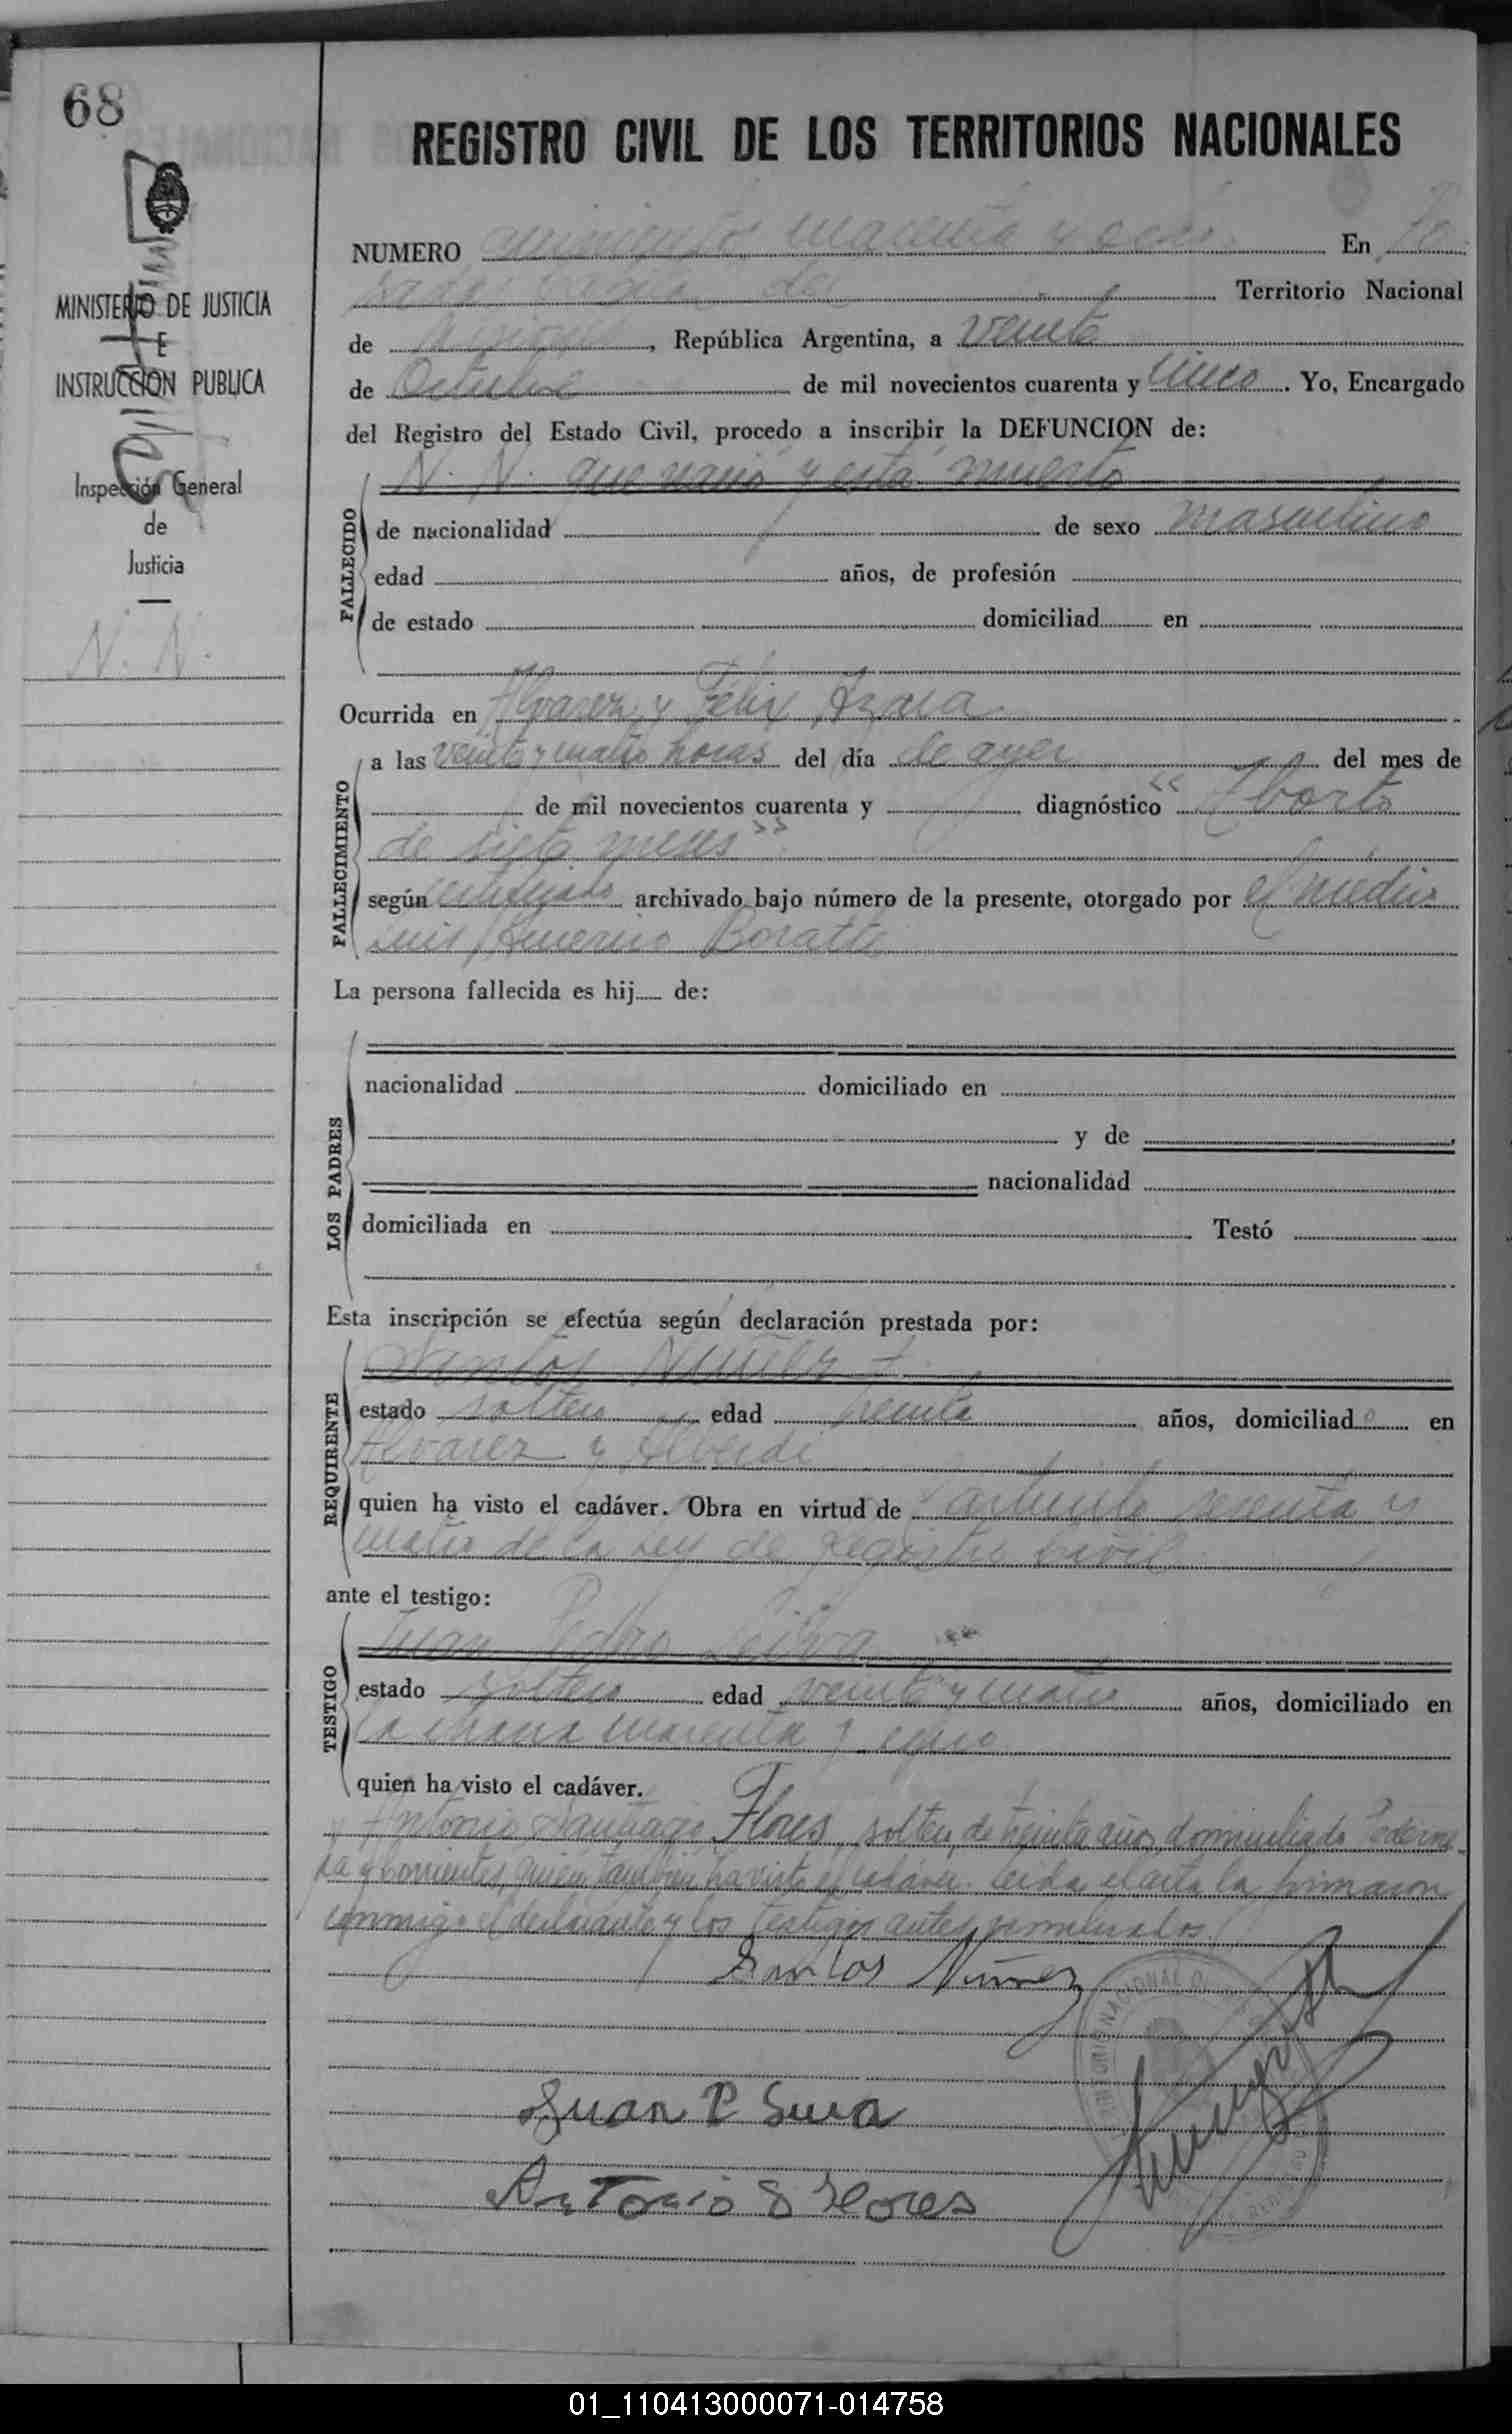 68
REGISTRO CIVIL DE LOS TERRITORIOS NACIONALES
MINISTERIO DE JUSTICIA
E
INSTRUCCIÓN PUBLICA
Inspección General
de
Justicia
N. N.
NUMERO quinientos cuarenta y ocho En Po
sadas Capital del Territorio Nacional
de Misiones, República Argentina, a veinte
de Octubre de mil novecientos cuarenta y cinco. Yo, Encargado
del Registro del Estado Civil, procedo a inscribir la DEFUNCION de:
N. N. que nació y está muerto
FALLECIDO
de nacionalidad de sexo masculino
edad años, de profesión
de estado domiciliad en
Ocurrida en Alvarez y Félix Azara
FALLECIMIENTO
a las veinte y cuatro horas del día de ayer del mes de
de mil novecientos cuarenta y diagnóstico "Aborto
de siete meses"
según certificado archivado bajo número de la presente, otorgado por el médico
Luis Boratti
La persona fallecida es hij de:
LOS PADRES
nacionalidad domiciliado en
y de
nacionalidad
domiciliada en Testó
Esta inscripción se efectúa según declaración prestada por:
Santos Nuñez
REQUIRENTE
estado soltero edad treinta años, domiciliado en
Alvarez y Alverdi
quien ha visto el cadáver. Obra en virtud de artículo sesenta y
cuatro de la ley de registro civil
ante el testigo:
Juan Pedro Leiva
TESTIGO
estado soltero edad veinte y cuatro años, domiciliado en
la chacra cuarenta y cinco
quien ha visto el cadáver.
y Antonio Santiago Flores, soltero, de treinta años, domiciliado Pederne
ra y Corrientes, quien también ha visto el cadáver. Leida el acta la firmaron
conmigo el declarante y los testigos antes nombrados.
Santos Nuñez
Juan P Leiva
Antonio S Flores
01_110413000071-014758